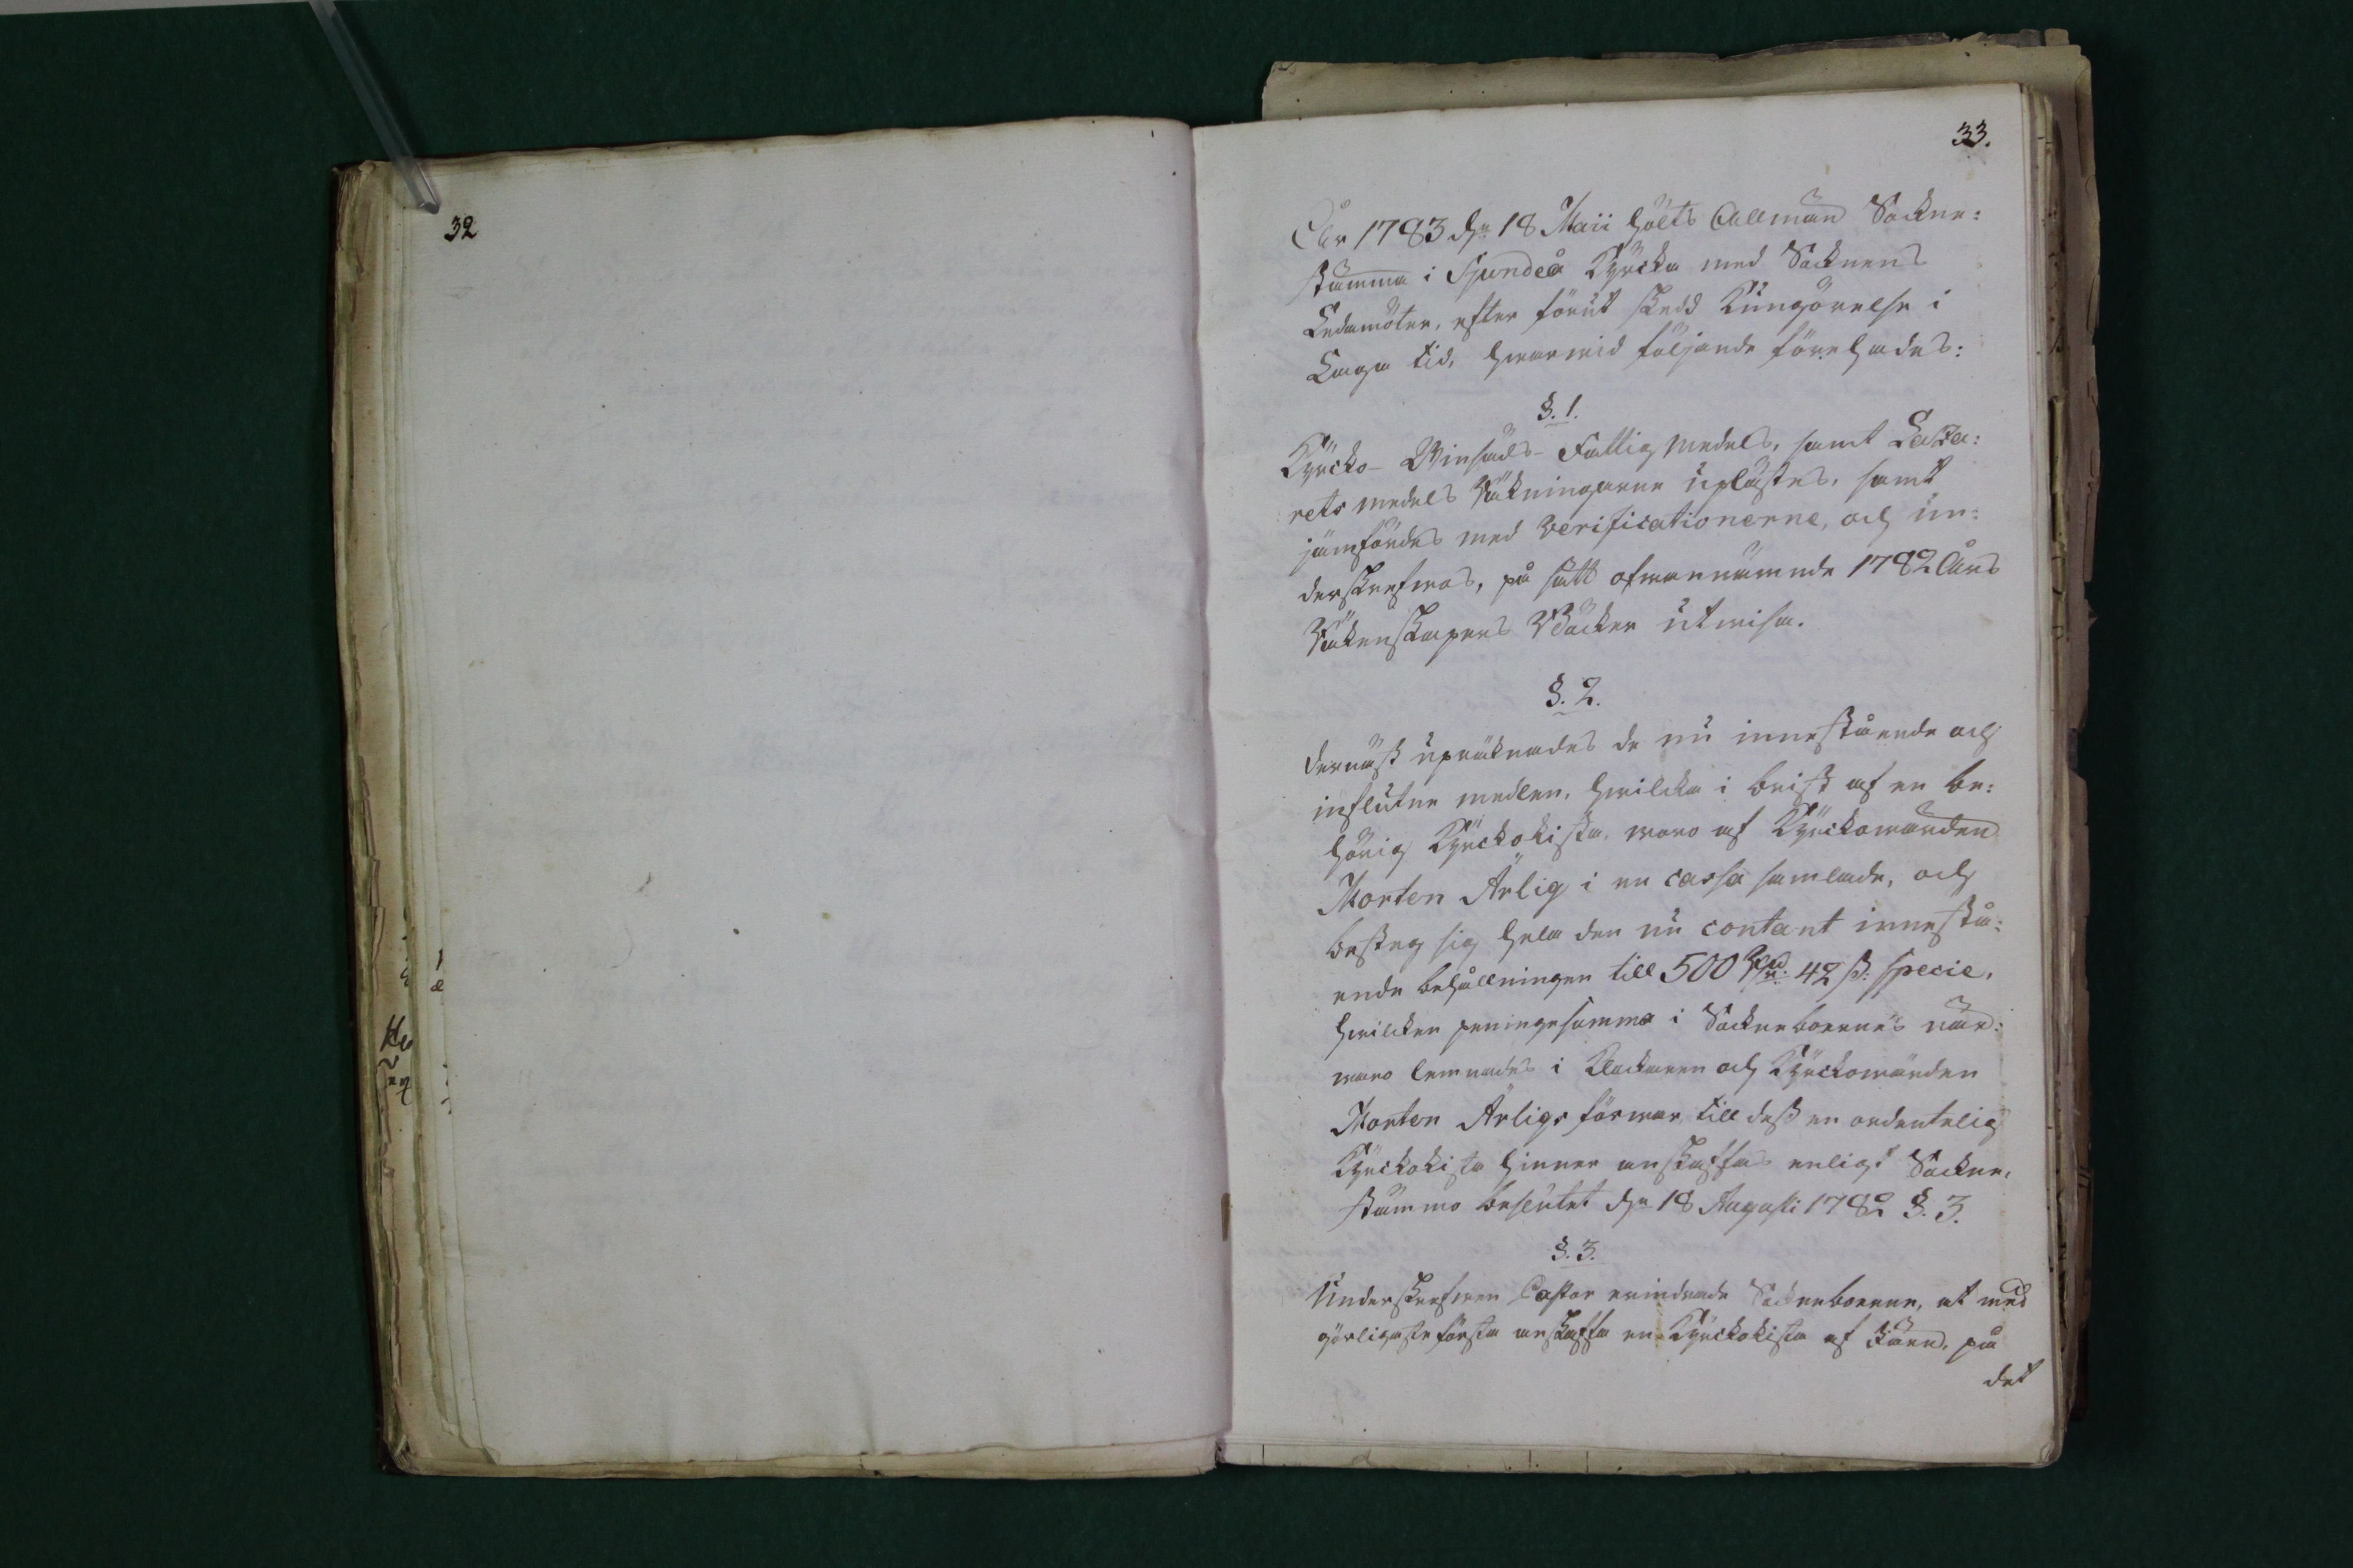 32
33.
År 1783 d:n 18 Maii hölts Allmän Sockne:
stämma i Sjundeå Kyrcka med Socknens
Ledamöter, efter förut skedd Kungörelse i
Laga tid, hwarwid följande förehades:
§. 1.
Kyrcko- Winsäds- Fattig medels, samt Laza:
rets medels Räkningarne uplästes, samt
jämfördes med Verificationerne, och un:
derskrefwos, på sätt ofwannämnde 1782 Års
Räkenskapers Böcker utwisa.
§. 2.
Dernäst upräknades de nu innestående och
influtne medlen, hwilcka i brist af en be:
hörig Kyrckokista, woro af Kyrckowärden
Morten Ärlig i en cassa samlade, och
besteg sig hela den nu contant innestå:
ende behållningen till 500 Rd. 42 ß. Specie,
hwilcken peninge summa i Sockneboernes när:
waro lemnades i Klockaren och Kyrckowärden
Morten Ärligs förwar till dess en ordentelig
Kyrckokista hinner anskaffas enligt Sockne,
stämmo beslutet d:n 18 Augusti 1782 §. 3.
§. 3.
Underskrefwen Pastor erindrade Sockneboerne, at med
görligaste första anskaffa en Kyrckokista af Järn, på
det